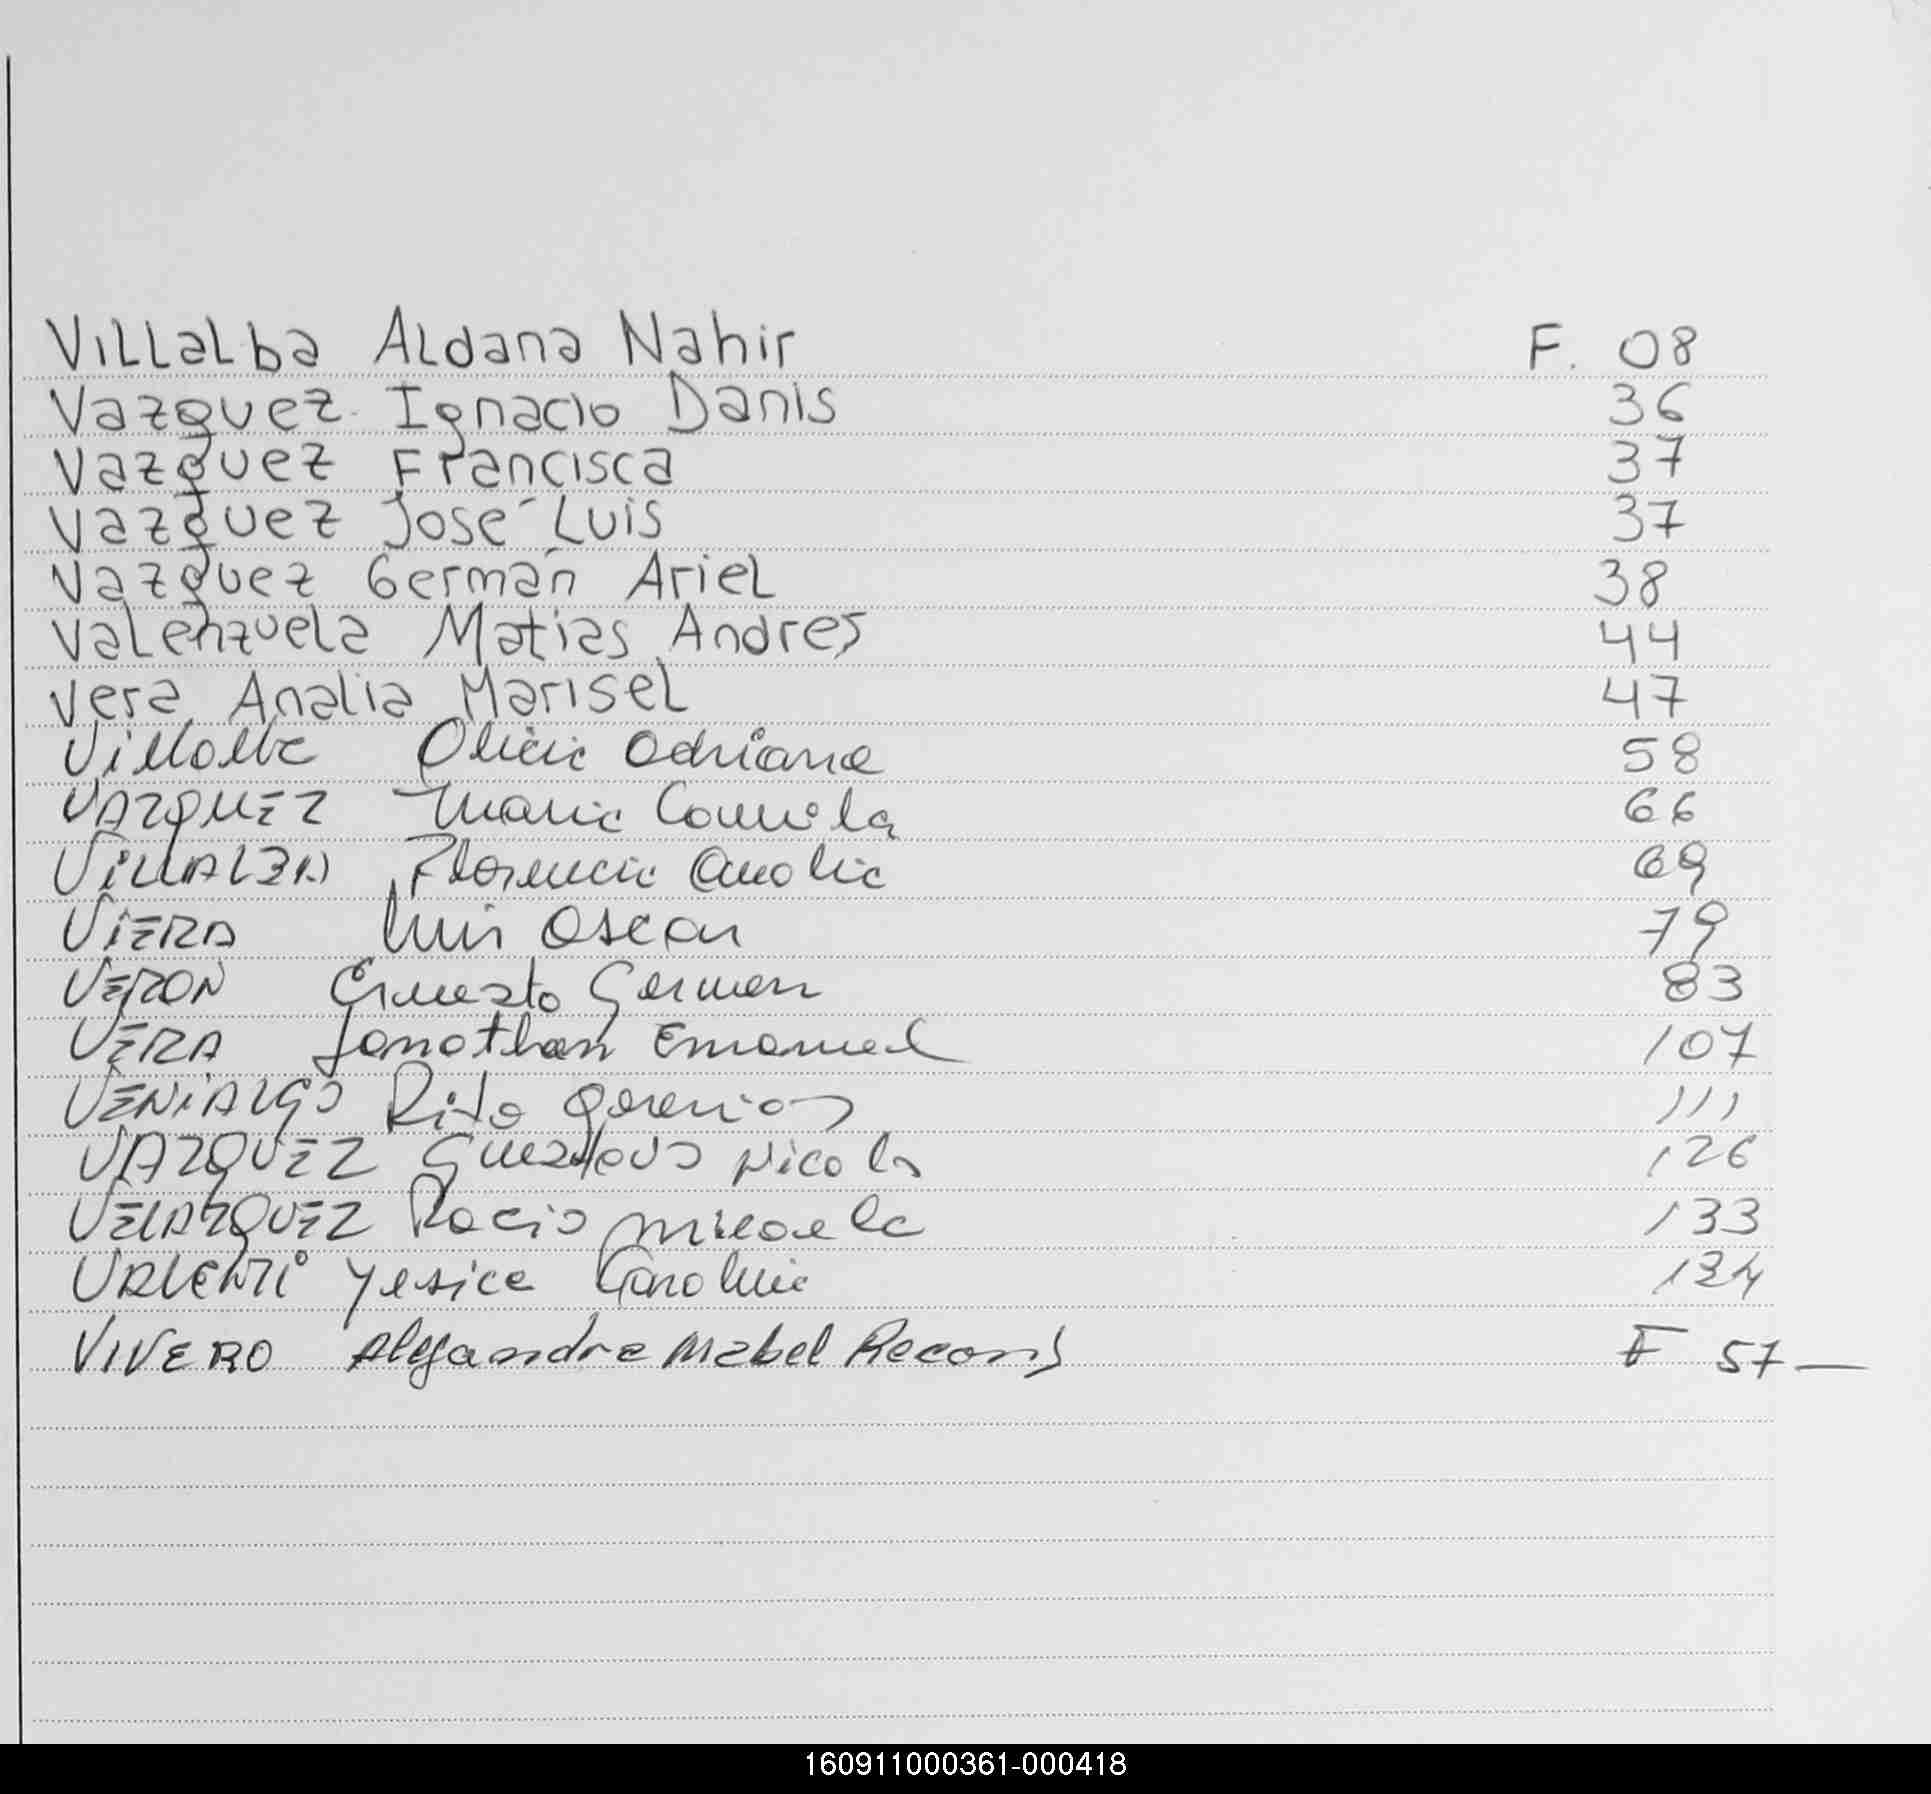 Villalba Aldana Nahir F. 08
Vazquez Ignacio Danis 36
Vazquez Francisca 37
Vazquez José Luis 37
Vazquez Germán Ariel 38
Valenzuela Matias Andres 44
Vera Analia Marisel 47
Villalba Olicia Adriana 58
VAZQUEZ Maria Camila 66
VILLALBA Florencia Analia 69
VIERA Luis Oscar 79
VERON Ernesto German 83
VERA Jonathan Emanuel 107
VENIALGO Rita 111
VAZQUEZ Gustavo Nicolas 126
VELAZQUEZ Rocio Micaela 133
VALENTi Yesica Carolina 134
VIVERO Alejandra Mabel F 57
160911000361-000418